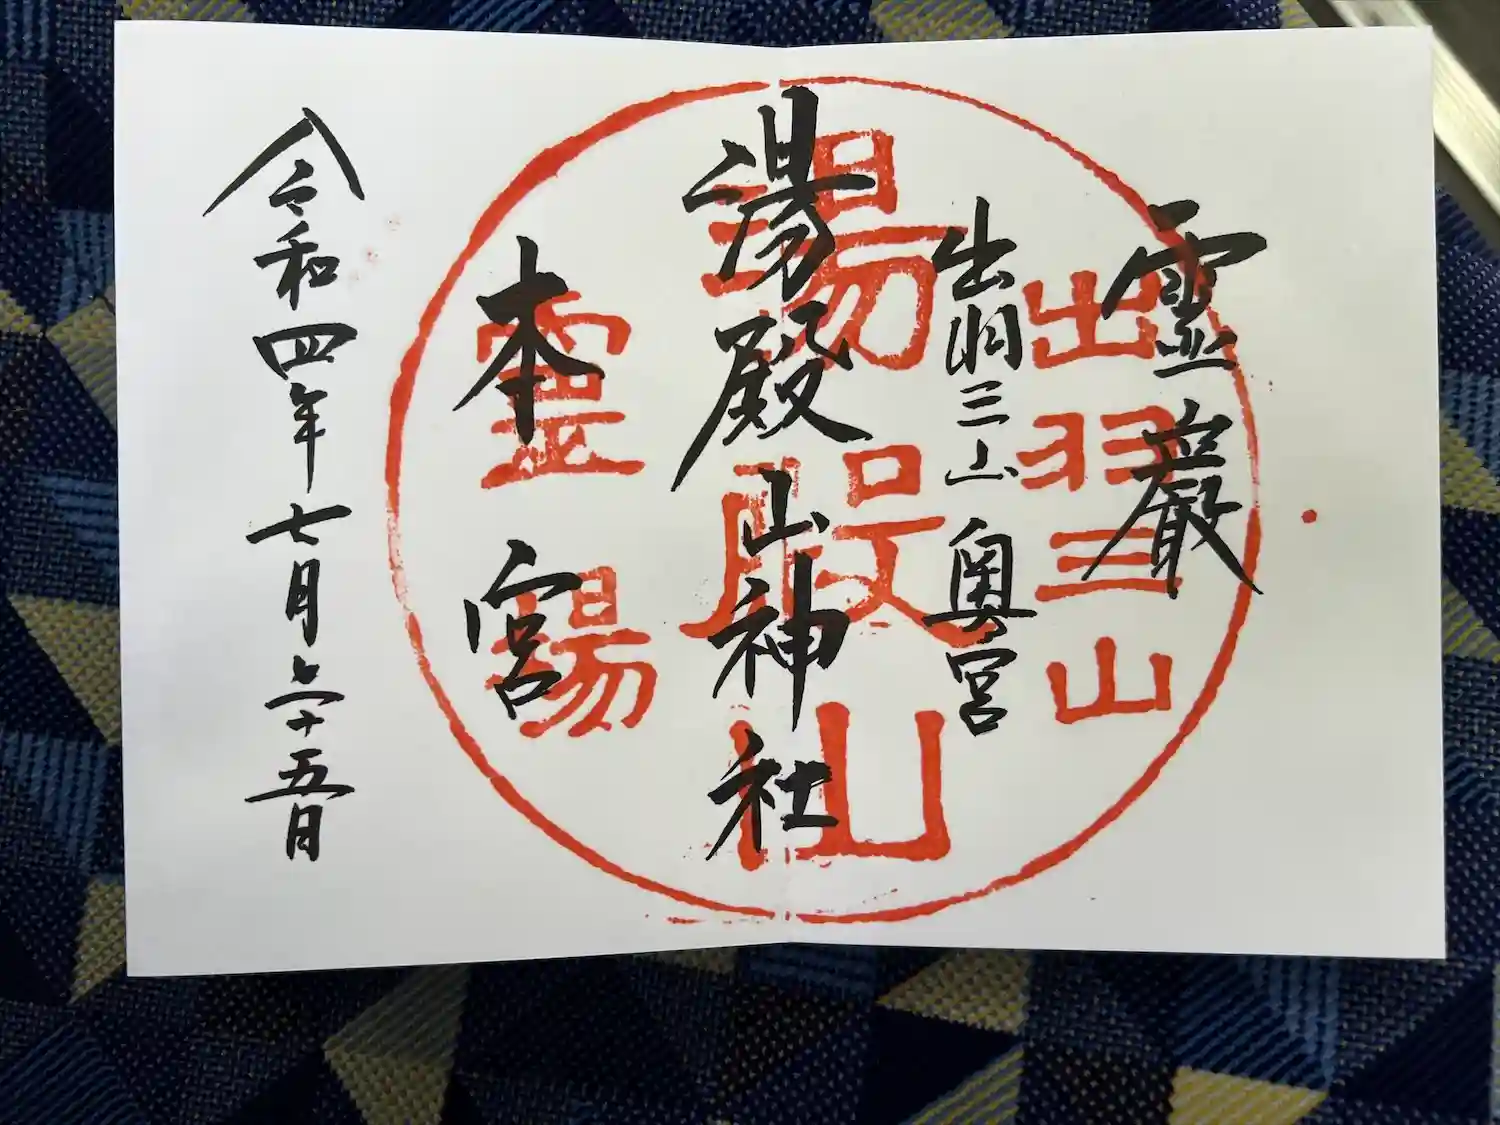 霊巌
出羽三山 奥宮
湯殿山神社
本宮
令和四年七月二十五日
出羽三山
湯殿山
霊場